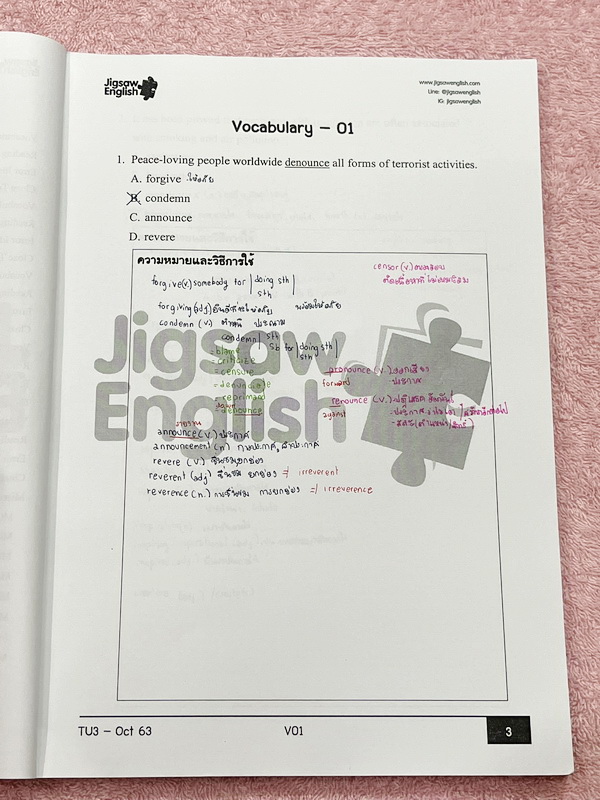 Jigsaw
English
www.jigsawenglish.com
Line: @jigsawenglish
IG: jigsawenglish
Vocabulary – 01
1. Peace-loving people worldwide denounce all forms of terrorist activities.
A. forgive ให้อภัย
B. condemn
C. announce
D. revere
ความหมายและวิธีการใช้
censor (v.) ตรวจสอบ
forgive(v.) somebody for | doing sth |
sth
forgiving (adj) พร้อมให้อภัย
condemn (v.) ตำหนิ ประณาม
condemn | sth
sb for | doing sth |
sth
= blame
= criticize
= censure
= denunciate
= reprimand
down
= denounce
pronounce (v.) ออกเสียง
forward ประกาศ
renounce (v.)
against
รายงาน
announce (v.) ประกาศ
announcement (n.)
revere (v.) ชื่นชม, ยกย่อง
reverent (adj) ชื่นชม ยกย่อง ≠ irreverent
reverence (n.) การชื่นชม การยกย่อง ≠ irreverence
Jigsaw
English
TU3 – Oct 63
V01
3